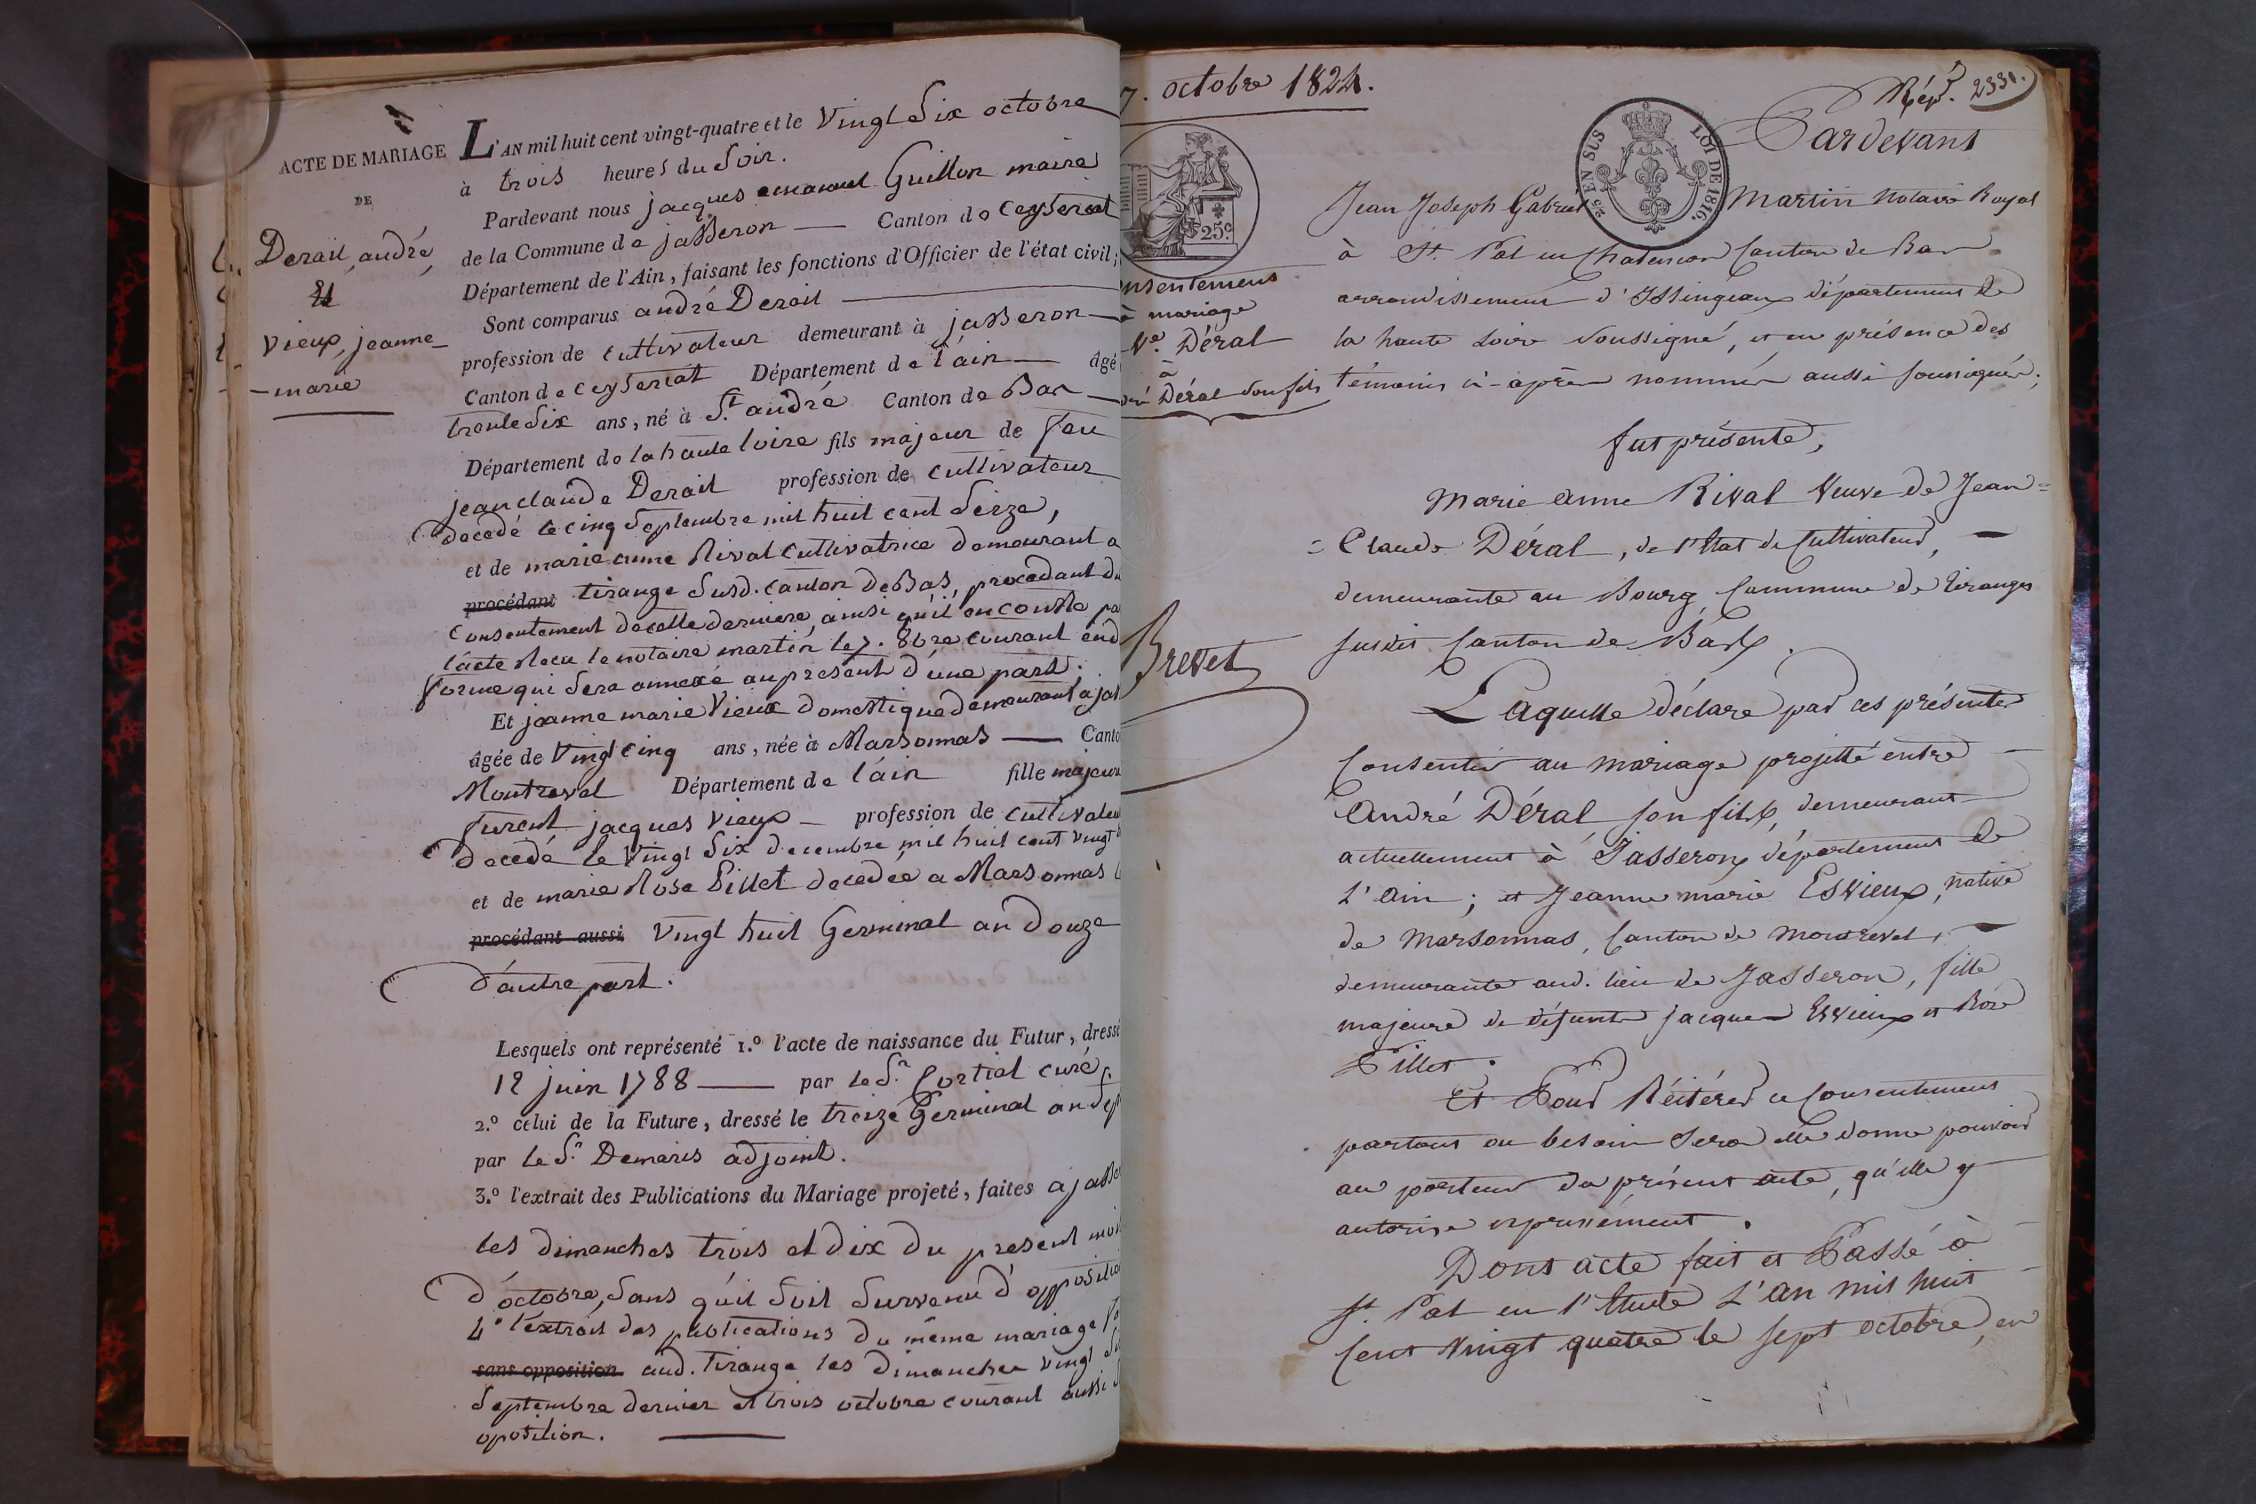 ACTE DE MARIAGE
DE
Derail, andré
Et
Vieux, jeanne
- marie
L'AN mil huit cent vingt-quatre et le Vingt Six octobre
à trois heures du Soir.
Pardevant nous jacques emanuel Guillon maire
de la Commune de jasseron — Canton de Ceyseriat
Département de l'Ain, faisant les fonctions d'Officier de l'état civil;
Sont comparus andré Derail
profession de cultivateur demeurant à jasseron
Canton de ceyseriat Département de l'ain — âgé
trente Six ans, né à St. andré Canton de Bas
Département de la haute loire fils majeur de feu
jean claude Derail profession de cultivateur
décédé le cinq Septembre mil huit cent Seize,
et de marie anne Rival Cultivatrice demeurant a
procédant tirange Susd. canton de Bas, procedant du
Consentement de cette derniere, ainsi qu'il en conste pa
l'acte Recu le notaire martin le 7. 8bre courant en d
forme qui Sera annexé au present d'une part.
Et jeanne marie Vieux domestique demeurant a jas
âgée de Vingt cinq ans, née à Marsonnas — Canto
Montreval Département de l'ain fille majeure
furent jacques Vieux — profession de cultivateu
décédé le Vingt Six decembre mil huit cent vingt
et de marie Rose Pillet decedée a Marsonnas l
procédant aussi Vingt huit Germinal an Douze
d'autre part.
Lesquels ont représenté 1.º l'acte de naissance du Futur, dressé
12 juin 1788 — par le Sr. Cortial curé.
2.º celui de la Future, dressé le treize Germinal an sept
par le Sr. Demaris adjoint.
3.º l'extrait des Publications du Mariage projeté, faites a jasse
les dimanches trois et dix du présent moi
d'octobre, Sans qu'il Soit Survenu d'oppositio
4º l'extrait des publications du même mariage f
sans opposition aud. Tirange les dimanches vingt Si
Septembre dernier et trois octobre courant aussi S
oposition.
7. octobre 1824.
25.c
nsentement
à mariage
Ve. Déral
à
dré Déral son fils
Brevet
Rép. 2331.
25 EN SUS LOI DE 1816.
Pardevant
Jean Joseph Gabriel Martin Notaire Royal
à St. Pal en Chalencon Canton de Bas
arrondissement d'Issingeaux département de
la haute Loire Soussigné, et en présence des
témoins ci-après nommés aussi soussignés;
fut présente,
Marie Anne Rival Veuve de Jean=
=Claude Déral, de l'Etat de Cultivateur,
demeurante au Bourg, Commune de Tiranges
susdit Canton de Bas.
Laquelle déclare par ces présentes
Consentir au mariage projetté entre
André Déral son fils, demeurant
actuellement à Jasseron département de
L'Ain; et Jeanne marie Esvieux, native
de Marsonnas, Canton de Montrevel,
demeurante aud. lieu de Jasseron, fille
majeure de défunts Jacques Esvieux et Rose
Pillet.
Et Pour Réitérer ce Consentement
partout ou besoin sera elle donne pouvoir
au porteur du présent acte, qu'elle y
autorise expressément.
Dont acte fait et Passé à
St. Pal en l'Etude L'An mil huit
Cent vingt quatre le sept octobre, en